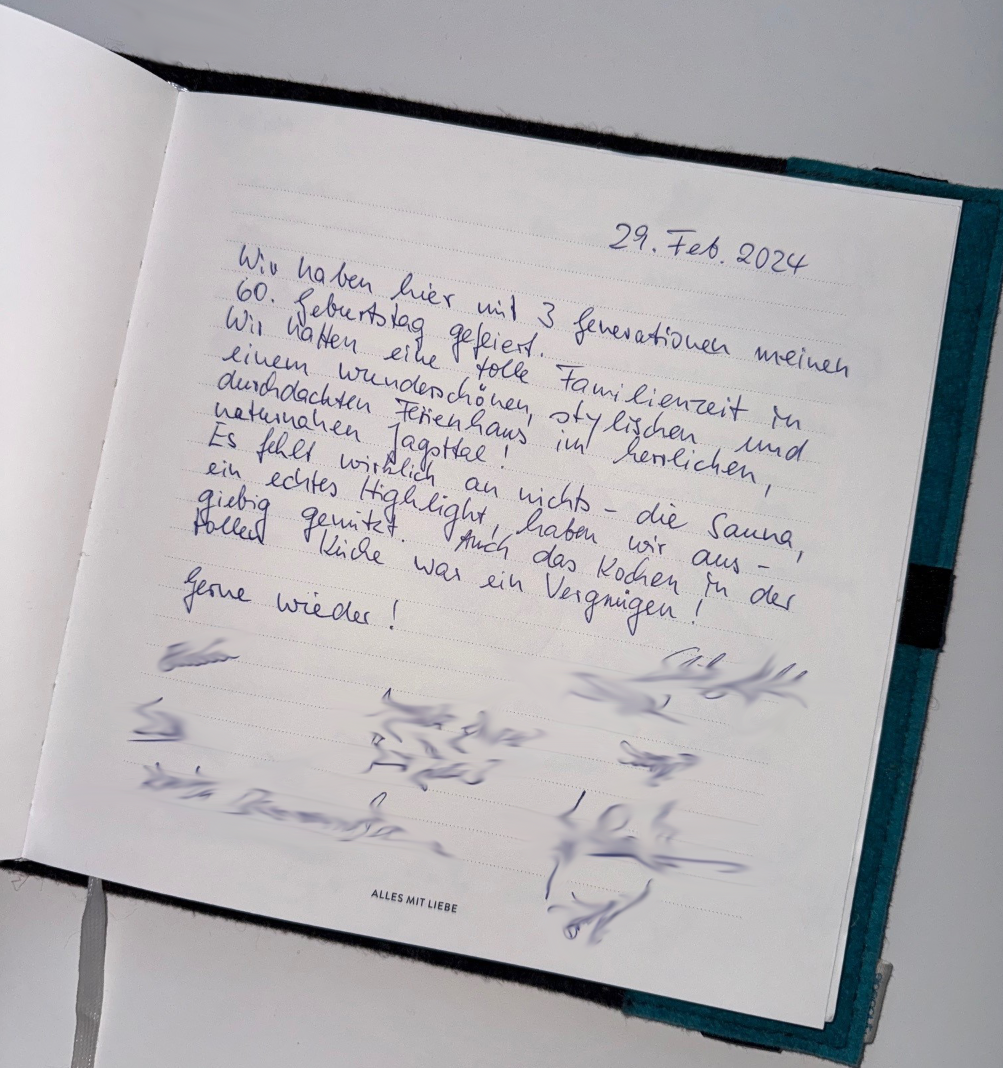 29. Feb. 2024
Wir haben hier mit 3 Generationen meinen
60. Geburtstag gefeiert.
Wir hatten eine tolle Familienzeit in
einem wunderschönen, stylischen und
durchdachten Ferienhaus im herrlichen,
naturnahen Jagsttal!
Es fehlt wirklich an nichts – die Sauna,
ein echtes Highlight, haben wir aus-
giebig genutzt. Auch das Kochen in der
tollen Küche war ein Vergnügen!
Gerne wieder!
ALLES MIT LIEBE